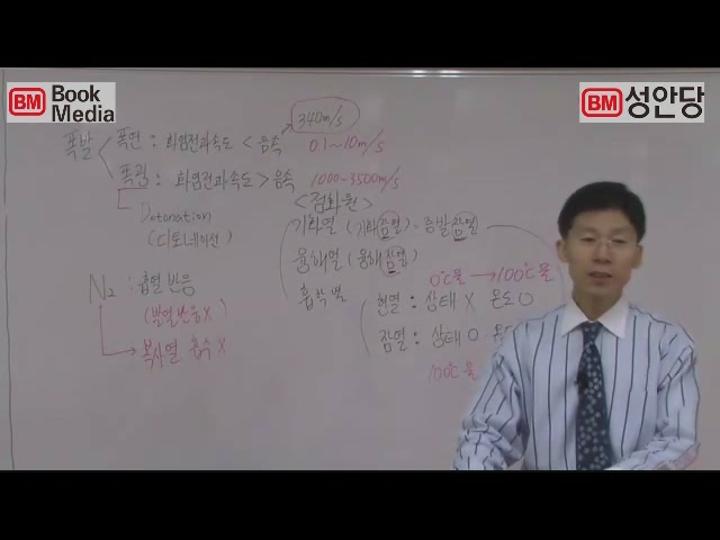 BM Book Media
BM 성안당
340m/s
폭발
폭연 : 화염전파속도 < 음속 0.1~10m/s
폭굉 : 화염전파속도 > 음속 1000~3500m/s
Detonation
(디토네이션)
<점화원>
기화열 (기화잠열) = 증발잠열
융해열 (융해잠열)
흡착열
N₂ : 흡열반응
(발열반응 X)
복사열 흡수 X
0℃물 → 100℃물
현열 : 상태 X 온도 O
잠열 : 상태 O 온도
100℃물